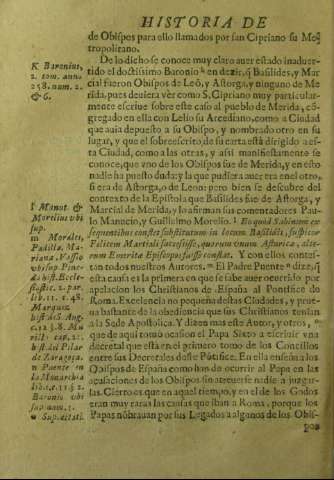 HISTORIA DE
de Obispos para ello llamados por san Cipriano su Me
tropolitano.
De lo dicho se conoce muy claro auer estado inaduer-
tido el doctissimo Baronio k en dezir, q̃ Basilides, y Mar
cial fueron Obispos de Leõ, y Astorga, y ninguno de Me
rida, pues deuiera ver como S. Cipriano muy particular-
mente escriue sobre este caso al pueblo de Merida, cõ-
gregado en ella con Lelio su Arcediano, como a Ciudad
que auia depuesto a su Obispo, y nombrado otro en su
lugar, y que el sobreescrito de su carta està dirigido a es-
ta Ciudad, como a las otras, y assi manifiestamente se
conoce, que vno de los Obispos fue de Merida, y en esto
nadie ha puesto duda; y la que pudiera auer era en el otro,
si era de Astorga, o de Leon: pero bien se descubre del
contexto de la Epistola que Basilides fue de Astorga, y
Marcial de Merida, y lo afirman sus comentadores Pau-
lo Manucio, y Guillielmo Morelio. l Ex quo Sabinum ex
sequentibus constet substitutum in locum Basilidis, suspicor
Felicem Martiali successisse, quorum vnum Asturica, alte-
rum Emerita Episcopos fuisse constat. Y con ellos contes-
tan todos nuestros Autores. m El Padre Puente n dize, q̃
esta causa es la primera en que se sabe auer ocurrido por
apelacion los Christianos de España al Pontifice de
Roma. Excelencia no pequeña destas Ciudades, y prue-
ua bastante de la obediencia que sus Christianos tenian
a la Sede Apostolica. Y dizen mas este Autor, y otros, o
que de aqui tomò ocasion el Papa Sixto a escriuir vna
decretal que està en el primero tomo de los Concilios
entre sus Decretales deste Põtifice. En ella enseña a los
Obispos de España como han de ocurrir al Papa en las
acusaciones de los Obispos sin atreuerse nadie a juzgar-
las. Cierto es que en aquel tiempo, y en el de los Godos
eran muy raras las causas que iban a Roma, porque los
Papas nõbrauan por sus Legados a algunos de los Obis-
pos
K Baronius,
2. tom. anno
258. num. 2.
& 6.
l Manut. &
Morelius vbi
sup.
m Morales,
Padilla, Ma-
riana, Vasseo
vbi sup. Pine-
da hist. Eccle-
siastic. 2. par.
lib. 11. c. 48.
Marquez
n Puente en
la Monarchia
Baronio vbi
sup. num. 5.
o Sup. citati